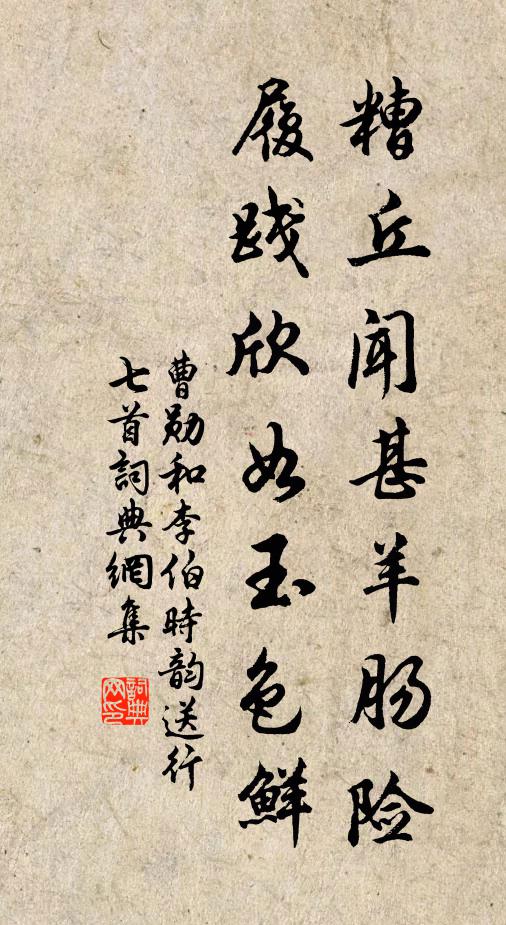 糟丘闻甚羊肠险
履践欣如玉色鲜
曹勋和李伯時韵送行
七首詞典網集
詞典
网印